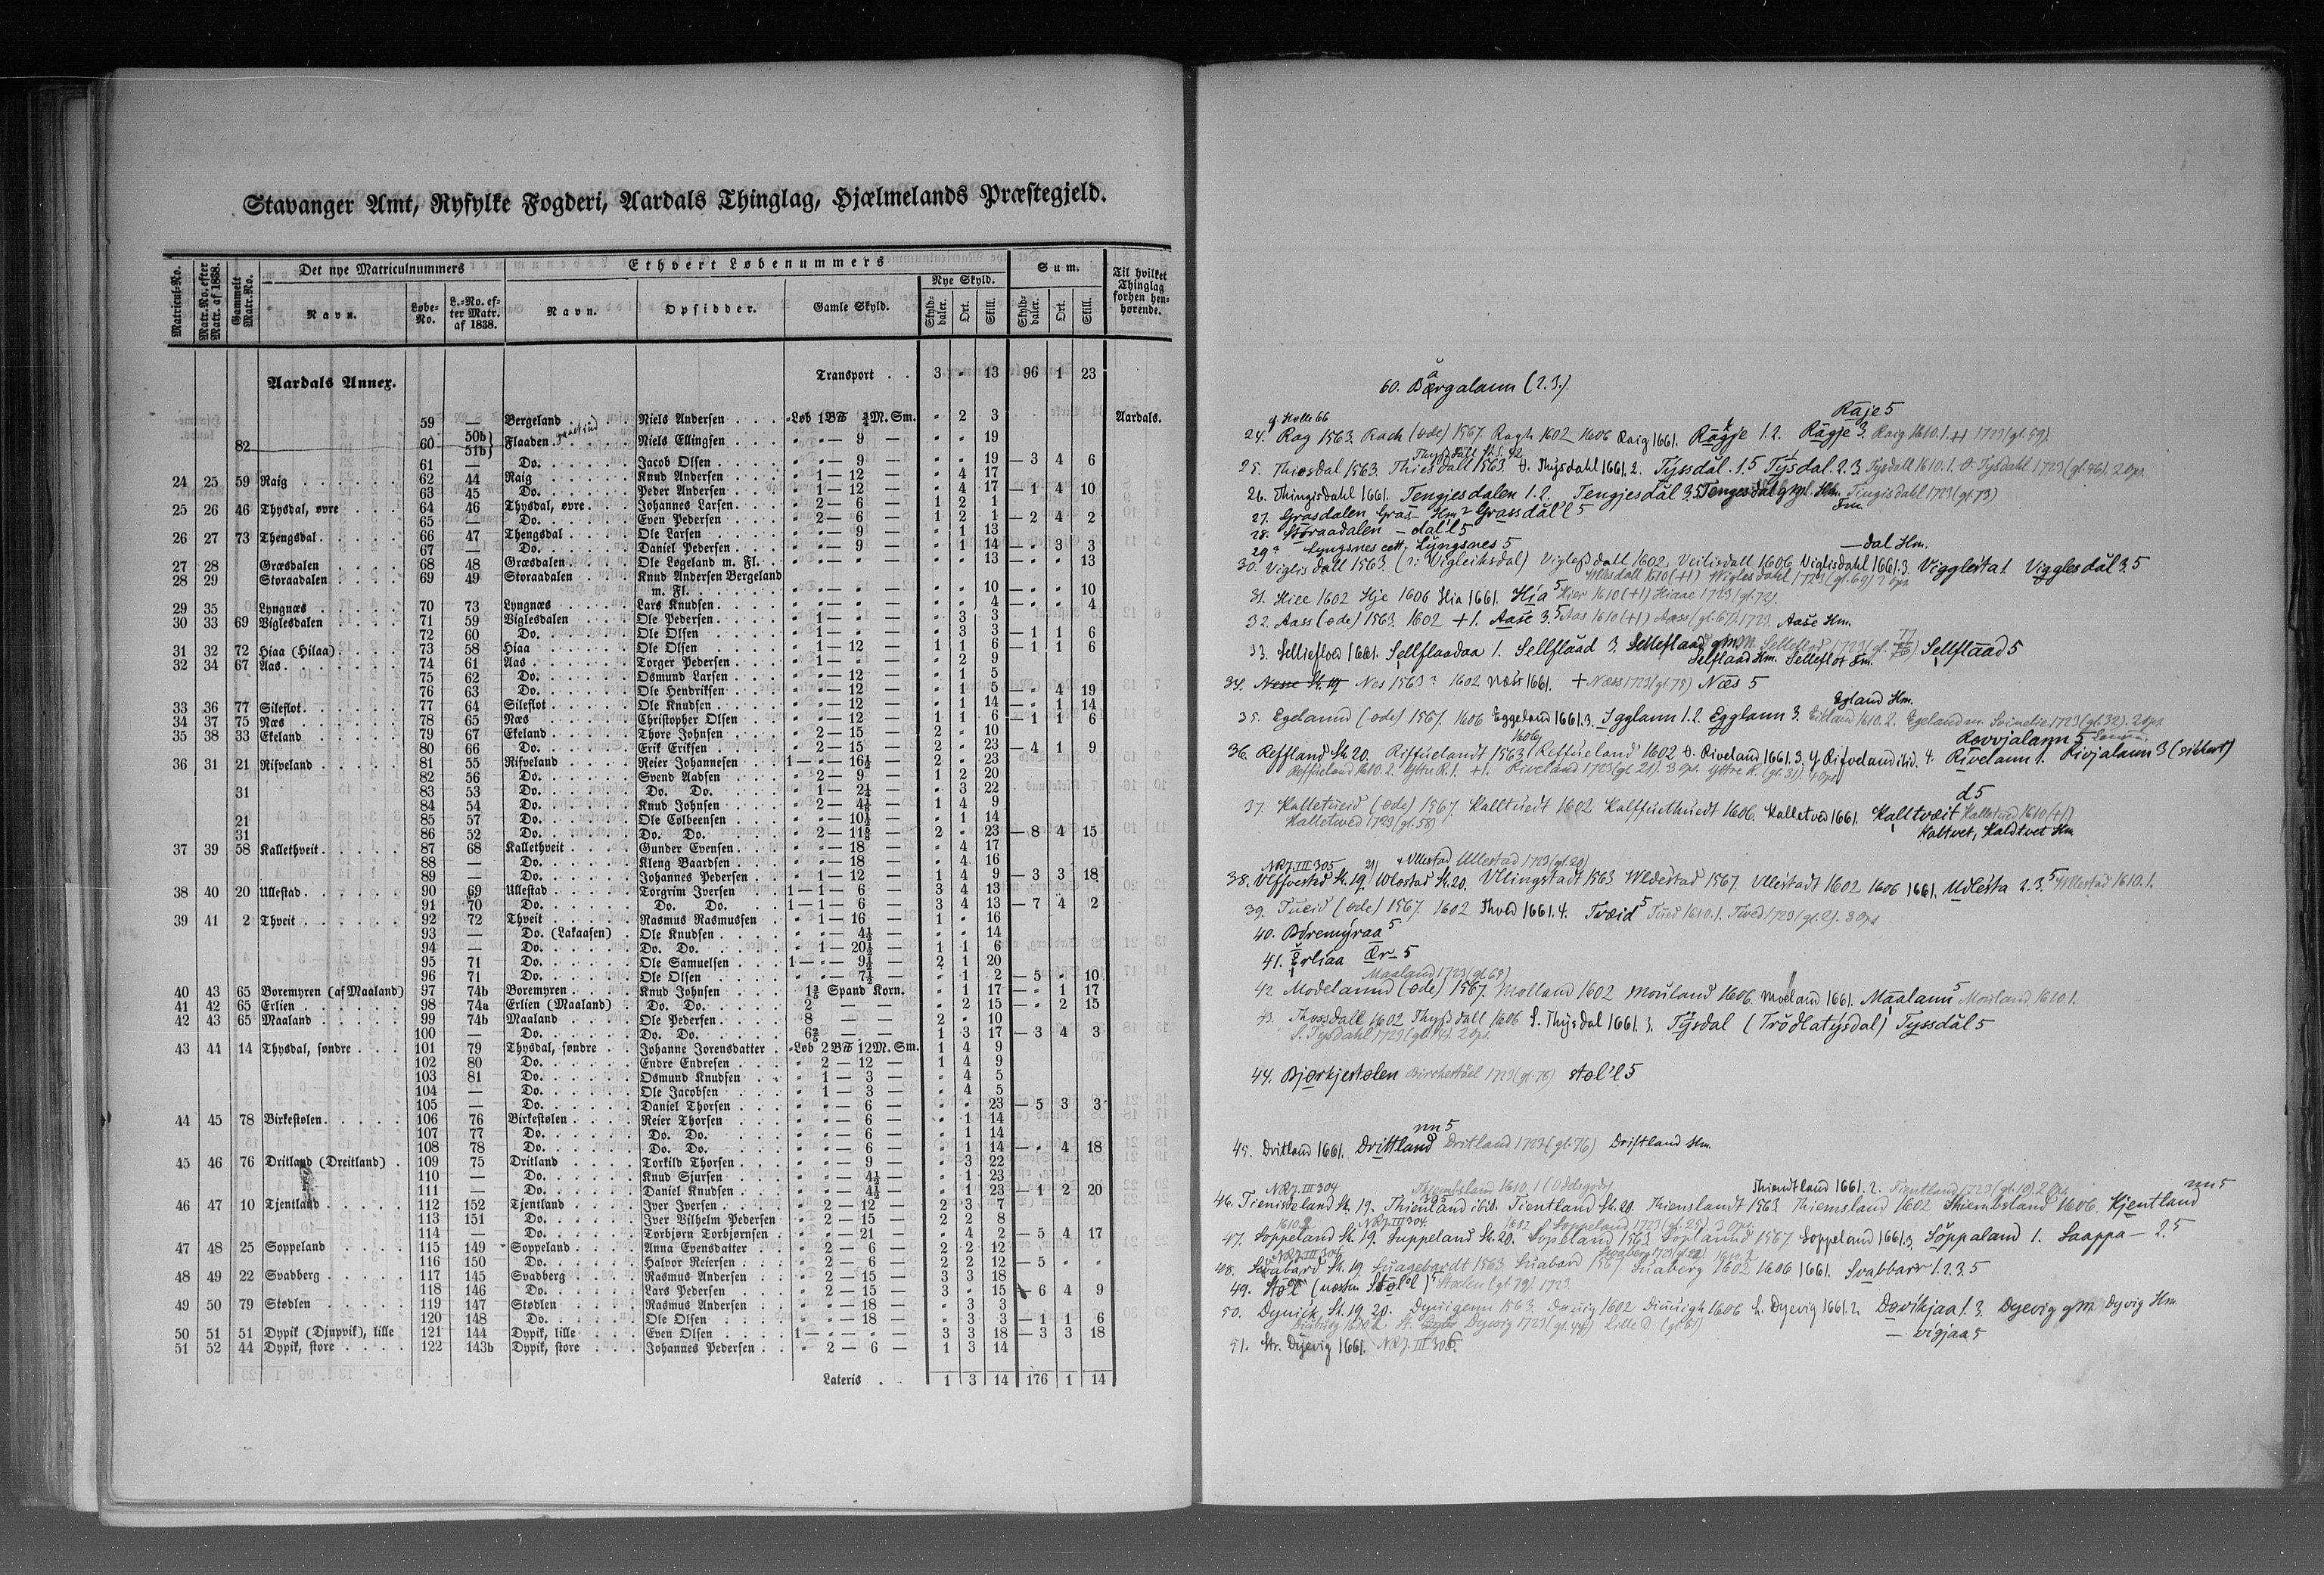 Stavanger Amt, Ryfylke Fogderi, Aardals Thinglag, Hjælmelands Præstegjeld.
Matricul-No. Matr.-No. efter Matr. af 1838. Gammelt Matr.-No. Det nye Matriculnummers Ethvert Løbenummers Sum. Til hvilket Thinglag forhen henhørende.
Navn. Løbe-No. L.-No. efter Matr. af 1838. Navn. Opsidder. Gamle Skyld. Nye Skyld. Skylddaler. Ort. Skill. Skylddaler. Ort. Skill.
Aardals Annex. Transport . . 3 " 13 96 1 23
59 — Bergeland . . Niels Andersen . . . . "Løb 1 BPd ¾ M. Sm. " 2 3 Aardals.
82 60 50b} 51b} Flaaden . . . . . Niels Ellingsen . . . . " " — 9 " " 19
61 — Do. . . . . . Jacob Olsen . . . . . " " — 9 — " " 19 — 3 4 6
24 25 59 Raig . . . . . . 62 44 Raig . . . . . Knud Andersen . . . . " 1 — 12 — " 4 17
63 45 Do. . . . . . Peder Andersen . . . . " 1 — 12 — " 4 17 — 1 4 10
25 26 46 Thysdal, øvre . . . 64 46 Thysdal, øvre . . . Johannes Larsen . . . . " 2 — 6 — 1 2 1
65 — Do. . . . . . Even Pedersen . . . . " 2 — 6 — 1 2 1 — 2 4 2
26 27 73 Thengsdal . . . . . 66 47 Thengsdal . . . . Ole Larsen . . . . . " " — 9 — " 1 13
67 — Do. . . . . . Daniel Pedersen . . . . " " — 9 — " 1 14 — " 3 3
27 28 Græsdalen . . . . 68 48 Græsdalen . . . . Ole Løgeland m. Fl. . . " " — " — " " 13 — " " 13
28 29 Storaadalen . . . . 69 49 Storaadalen . . . Knud Andersen Bergeland
m. Fl. . . . . . . " " — " — " " 10 — " " 10
29 35 Lyngnæs . . . . . 70 73 Lyngnæs . . . . . Lars Knudsen . . . . . " " — " — " " 4 — " " 4
30 33 69 Viglesdalen . . . . 71 59 Viglesdalen . . . . Ole Pedersen . . . . . " 1 — " — " 3 3
72 60 Do. . . . . . Ole Olsen . . . . . " 1 — " — " 3 3 — 1 1 6
31 32 72 Hiaa (Hilaa) . . . . 73 58 Hiaa . . . . . Ole Olsen . . . . . " 1 — 12 — 1 1 6 — 1 1 6
32 34 67 Aas . . . . . . 74 61 Aas . . . . . . Torger Pedersen . . . . " 1 — " — " 2 9
75 62 Do. . . . . . Osmund Larsen . . . . " " — 12 — " 1 5
76 63 Do. . . . . . Ole Hendriksen . . . . " " — 12 — " 1 5 — " 4 19
33 36 77 Sileflot . . . . . 77 64 Sileflot . . . . . Ole Knudsen . . . . . " " — 12 — " 1 14 — " 1 14
34 37 75 Næs . . . . . . 78 65 Næs . . . . . Christopher Olsen . . . " " — 12 — 1 1 6 — 1 1 6
35 38 33 Ekeland . . . . . 79 67 Ekeland . . . . . Thore Johnsen . . . . " 2 — 15 — 2 " 10
80 66 Do. . . . . . Erik Eriksen . . . . . " 2 — 15 — 2 " 23 — 4 1 9
36 31 21 Rifveland . . . . . 81 55 Rifveland . . . . Reier Johannesen . . . 1 — " — 16½ — 2 " 23
82 56 Do. . . . . . Svend Aadsen . . . . " 2 — 9 — 1 2 20
31 83 53 Do. . . . . . Do. Do. . . . . . " 1 — 2¼ — " 3 22
84 54 Do. . . . . . Knud Johnsen . . . . " 2 — 4½ — 1 4 9
21 85 57 Do. . . . . . Ole Colbeensen . . . . " " — 10½ — " 1 14
31 86 52 Do. . . . . . Do. Do. . . . . . " 2 — 11⅝ — 2 " 23 — 8 4 15
37 39 58 Kallethveit . . . . . 87 68 Kallethveit . . . . Gunder Evensen . . . . " " — 18 — " 4 17
88 — Do. . . . . . Kleng Baardsen . . . . " " — 18 — " 4 16
89 — Do. . . . . . Johannes Pedersen . . . " 1 — 12 — 1 4 9 — 3 3 18
38 40 20 Ullestad . . . . . 90 69 Ullestad . . . . . Torgrim Iversen . . . 1 — 1 — 6 — 3 4 13
91 70 Do. . . . . . Do. Do. . . . . 1 — 1 — 6 — 3 4 13 — 7 4 2
39 41 2 Thveit . . . . . . 92 72 Thveit . . . . . Rasmus Rasmussen . . " 1 — 16 — 1 " 16
93 — Do. (Lakaasen) . Ole Knudsen . . . . . " " — 4½ — " " 14
94 — Do. . . . . . Do. Do. . . . . . " 1 — 20½ — 1 1 6
95 71 Do. . . . . . Ole Samuelsen . . . . 1 — " — 9½ — 2 1 20
96 71 Do. . . . . . Ole Olsen . . . . . " " — 7½ — " 1 2 — 5 " 10
40 43 65 Boremyren (af Maaland) 97 74b Boremyren . . . . Knud Johnsen . . . . 1⅗ Spand Korn. " 1 17 — " 1 17
41 42 65 Erlien . . . . . . 98 74a Erlien (Maaland) . Do. Do. . . . . . 2 — — " 2 15 — " 2 15
42 43 65 Maaland . . . . . 99 74b Maaland . . . . Ole Pedersen . . . . . 8 — — 2 " 10
100 — Do. . . . . . Do. Do. . . . . . 6⅖ — — 1 3 17 — 3 4 3
43 44 14 Thysdal, søndre . . . 101 79 Thysdal, søndre . . Johanne Jorensdatter . . "Løb 2 BPd 12 M. Sm. 1 4 9
102 80 Do. . . . . . Endre Endresen . . . . " 2 — 12 — 1 4 9
103 81 Do. . . . . . Osmund Knudsen . . . " 1 — 3 — " 4 5
104 — Do. . . . . . Ole Jacobsen . . . . " 1 — 3 — " 4 5
105 — Do. . . . . . Daniel Thorsen . . . . " " — 6 — " " 23 — 5 3 3
44 45 78 Birkestølen . . . . . 106 76 Birkestølen . . . . Reier Thorsen . . . . " " — 6 — " 1 14
107 77 Do. . . . . . Do. Do. . . . . . " " — 6 — " 1 14
108 78 Do. . . . . . Do. Do. . . . . . " " — 6 — " 1 14 — " 4 18
45 46 76 Dritland (Dreitland) . 109 75 Dritland . . . . Torkild Thorsen . . . . " " — 9 — " 3 22
110 — Do. . . . . . Knud Sjursen . . . . " " — 4½ — " 1 23
111 — Do. . . . . . Daniel Knudsen . . . . " " — 4½ — " 1 23 — 1 2 20
46 47 10 Tjentland . . . . . 112 152 Tjentland . . . . Iver Iversen . . . . . " 2 — 12 — 2 3 7
113 151 Do. . . . . . Iver Vilhelm Pedersen . " 2 — 15 — 2 2 8
114 — Do. . . . . . Torbjørn Torbjørnsen . . " " — 21 — " 4 2 — 5 4 17
47 48 25 Soppeland . . . . 115 149 Soppeland . . . . Anna Evensdatter . . . " 2 — 6 — 2 2 12
116 150 Do. . . . . . Halvor Reiersen . . . . " 2 — 6 — 2 2 12 — 5 " "
48 49 22 Svadberg . . . . . 117 145 Svadberg . . . . Rasmus Andersen . . . " 2 — 15 — 3 3 18
118 146 Do. . . . . . Lars Pedersen . . . . " 2 — 15 — 3 " 15 — 6 4 9
49 50 79 Stødlen . . . . . 119 147 Stødlen . . . . . Rasmus Andersen . . . " " — 18 — " 3 3
120 148 Do. . . . . . Ole Olsen . . . . . " " — 18 — " 3 3 — 1 1 6
50 51 51 Dypik (Djupvik), lille 121 144 Dypik, lille . . . Even Olsen . . . . . 1 — " — " — 3 3 18 — 3 3 18
51 52 44 Dypik, store . . . . 122 143b Dypik, store . . . Johannes Pedersen . . . " 2 — 6 — 1 3 14
Lateris . . 1 3 14 176 1 14
60. Bærgalann (2.3.)
Råje 5
24. Rag 1563. Rach (øde) 1567. Ragh 1602 1606 Raig 1661. Rågje 1.2. Rågje 3. Raig 1610.1. 1723 (gl. 59).
25. Thiosdal 1563. Thiesdall 1563 Ø. Thÿsdahl 1661.2. Tyssdal. 1.5 Tysdal. 2.3. Tysdall 1610.1. Ø. Tysdahl 1723 (gl. 46). 2 Ops.
26. Thingisdahl 1661. Tengjesdalen 1.2. Tengjesdål 3.5 Tengesdal Hm. Tingisdahl 1723 (gl. 73)
27. Grasdalen Gras- Hm. Grassdål'l 5
28. Storaadalen — dal'l 5
29. Lyngsnes 5
—dal Hm.
30. Viglisdall 1563. (ɔ: Vigleiksdal) Vigleßdall 1602. Veilisdall 1606 Viglisdahl 1661.3. Vigglesta 1. Vigglesdål 3.5
31. Hiee 1602 Hje 1606 Hia 1661. Hia 5 Hier 1610 (+1) Hiaae 1723 (gl. 72).
32. Aass (øde) 1563. 1602 +1. Aase 3.5 Aas 1610 (+1) Aass (gl. 67). 1723. Aase Hm.
33. Selliefloed 1661. Sellflaadaa 1. Sellflaad 3. Selleflaad Selleflod 1723 Sellflåad 5
Selflaad Hm. Selleflot Fm.
34. Nes 1563 1602 Næss 1661. + Næss 1723 (gl. 75) Næs 5
Egland Hm.
35. Egelannd (øde) 1567. 1606 Eggeland 1661.3. Igglann 1.2. Egglann 3. Eikland 1610.2. Egeland m. Svinelie 1723 (gl. 32). 2 Ops.
Rovvjalann 5
36. Reffland St. 20. Riffuelandt 1563 Reffueland 1602 Ø. Riveland 1661.3. Y. Rifveland ibid. 4. Rivelann 1. Rivjalann 3 (sikkert)
Reffueland 1610.2. Yttre R. 1. +1. Riveland 1723 (gl. 21). 3 Ops. Yttre R. (gl. 31). 4 Ops.
d 5
37. Kalletueid (øde) 1567. Kalltuedt 1602 Kalffuethuedt 1606. Kalletved 1661. Kalltvæit Kalletued 1610 (+1)
Kalletwed 1723 (gl. 58)
Kaltvet, Kaldtvet Hm
NRJ. III 305 Ullestad 1723 (gl. 20)
38. Ulffvested St. 19. Wlostad St. 20. Ullingstadt 1563 Wldestad 1567. Ullestadt 1602 1606 1661. Udlesta 2.3. 5 Ullestad 1610.1.
39. Tueid (øde) 1567. 1602 Thved 1661.4. Tvæid 5 Tued 1610.1. Twed 1723 (gl. 2). 3 Ops
40. Boremyraa 5
41. Erliaa Ær- 5
Maaland 1723 (gl. 65)
42. Modelannd (øde) 1567. Molland 1602 Mouland 1606. Moeland 1661. Maalann 5 Mouland 1610.1.
43. Thossdall 1602 Thyßdall 1606 S. Thÿsdal 1661.3. Tÿsdal (Trödlatýsdal) Tyssdål 5
S. Tysdahl 1723 (gl. 14). 2 Ops.
44. Bjørkjestølen Birchestöel 1723 (gl. 78) støl'l 5
nn 5
45. Dritland 1661. Drittland Dritland 1723 (gl. 76) Driftland Hm.
NRJ. III 304 Thiemsland 1610.1 (Odelsgods) Thiendtland 1661.2. Tientland 1723 (gl. 10). 2 Ops. nn 5
46. Tiennseland St. 19. Thienland ibid. Tientland St. 20. Thiemslandt 1563 Thiemsland 1602 Thiembsland 1606. Kjentland
1610.2 NRJ. III 304. 1602 Soppeland 1723 (gl. 25) 3 Ops.
47. Soppeland St. 19. Suppeland St. 20. Sopeland 1563 Soplannd 1567. Soppeland 1661.3. Söppaland 1. Saappa — 2.5
NRJ. III 306 Svaberg 1723 (gl. 22) 1610.2
48. Svabard St. 19 Suagebardt 1563 Suabard 1567 Suaberg 1602 1606 1661. Svabbarr 1.2.3.5
49. Støl'l (næsten Stöl'l) Stølen (gl. 79). 1723
50. Dyuick St. 19. 20. Dyuigenn 1563. Døuig 1602 Diuuigh 1606 L. Dyevig 1661.2. Døvikjaa 1.3. Dyevig Dyvig Hm
St. Dyevig 1723 (gl. 44) Lille D. (gl. 51) — vigjaa 5
51. Str. Dÿevig 1661. NRJ. III 306.